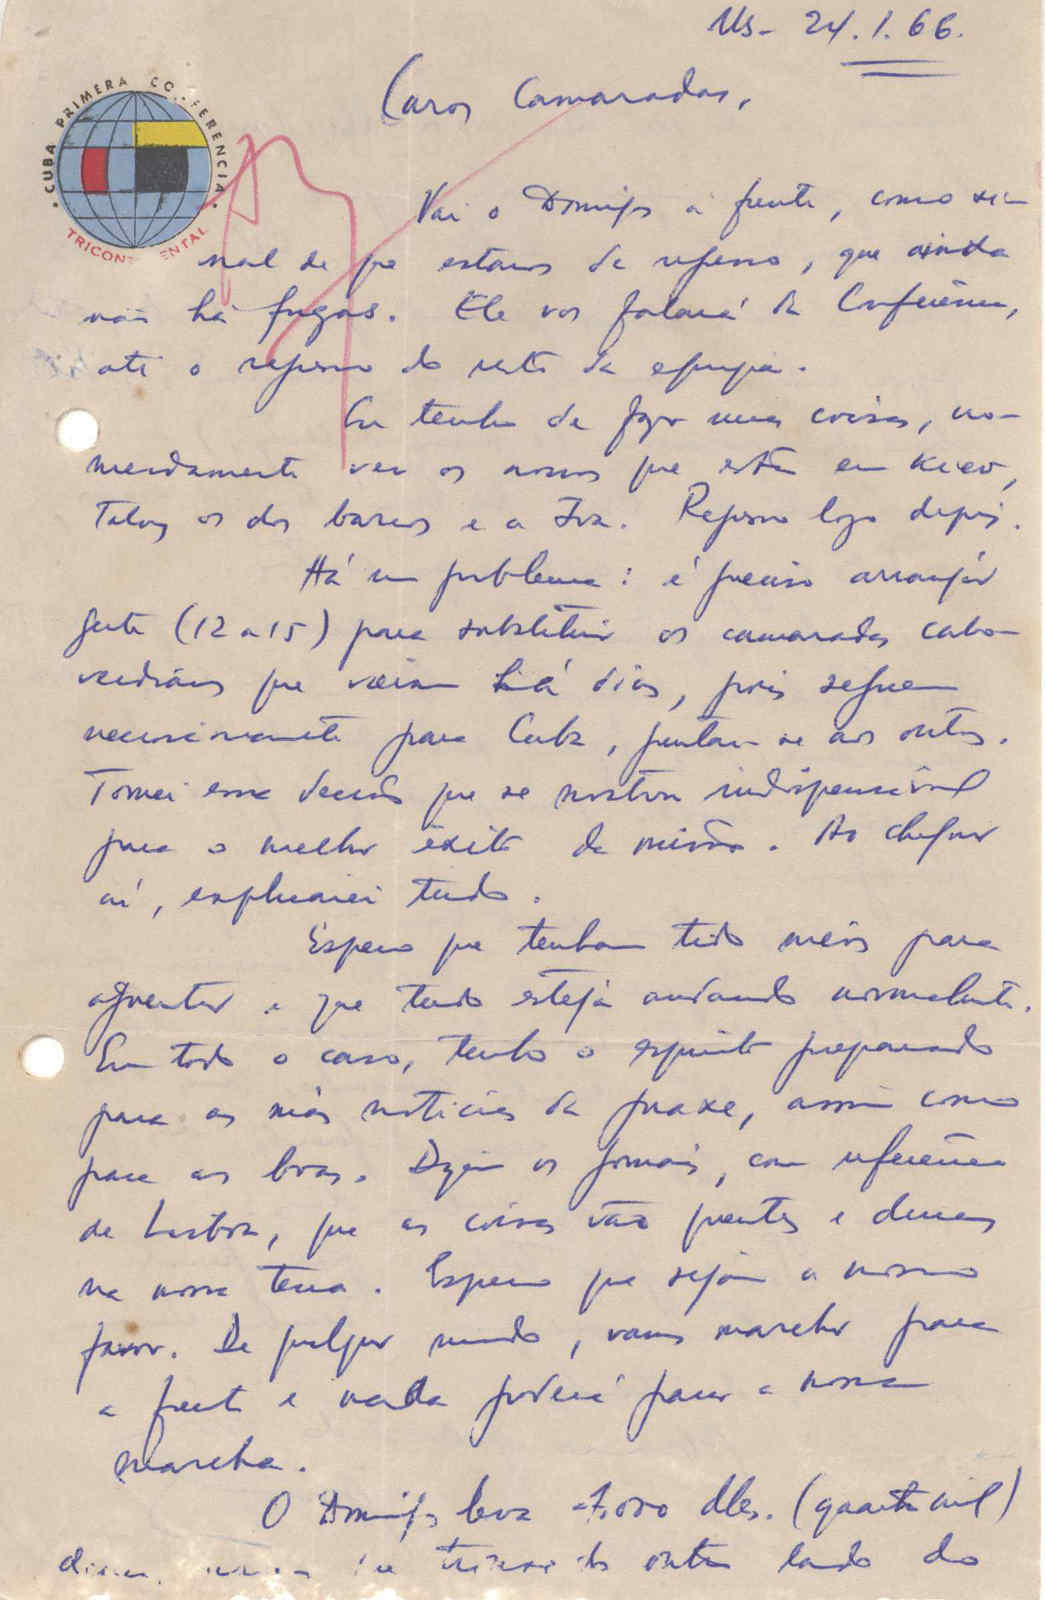 Ms- 24.1.66.
CUBA PRIMERA CONFERENCIA
TRICONTINENTAL
Caros Camaradas,
Vai o Domingos à frente, como si-
nal de que estamos de regresso, que ainda
não há fugas. Ele vos falará da Conferência,
até o regresso do resto da equipa.
Eu tenho de fazer umas coisas, no-
meadamente ver os nossos que estão em Kiev,
Talvez os dos barcos e a Iva. Regresso logo depois.
Há um problema: é preciso arranjar
gente (12 a 15) para substituir os camaradas cabo-
verdianos que vieram há dias, pois seguem
necessariamente para Cuba, juntam-se aos outros.
Tomei essa decisão que se mostrou indispensável
para o melhor êxito da missão. Ao chegar
aí, explicarei tudo.
Espero que tenham tido meios para
aguentar e que tudo esteja andando normalmente.
Em todo o caso, tenho o espírito preparado
para as más notícias da praxe, assim como
para as boas. Dizem os jornais, com referência
de Lisboa, que as coisas vão quentes e duras
na nossa terra. Espero que sejam a nosso
favor. De qualquer modo, vamos marchar para
a frente e nada poderá parar a nossa
marcha.
O Domingos leva 4.000 dles. (quatro mil)
outro lado do